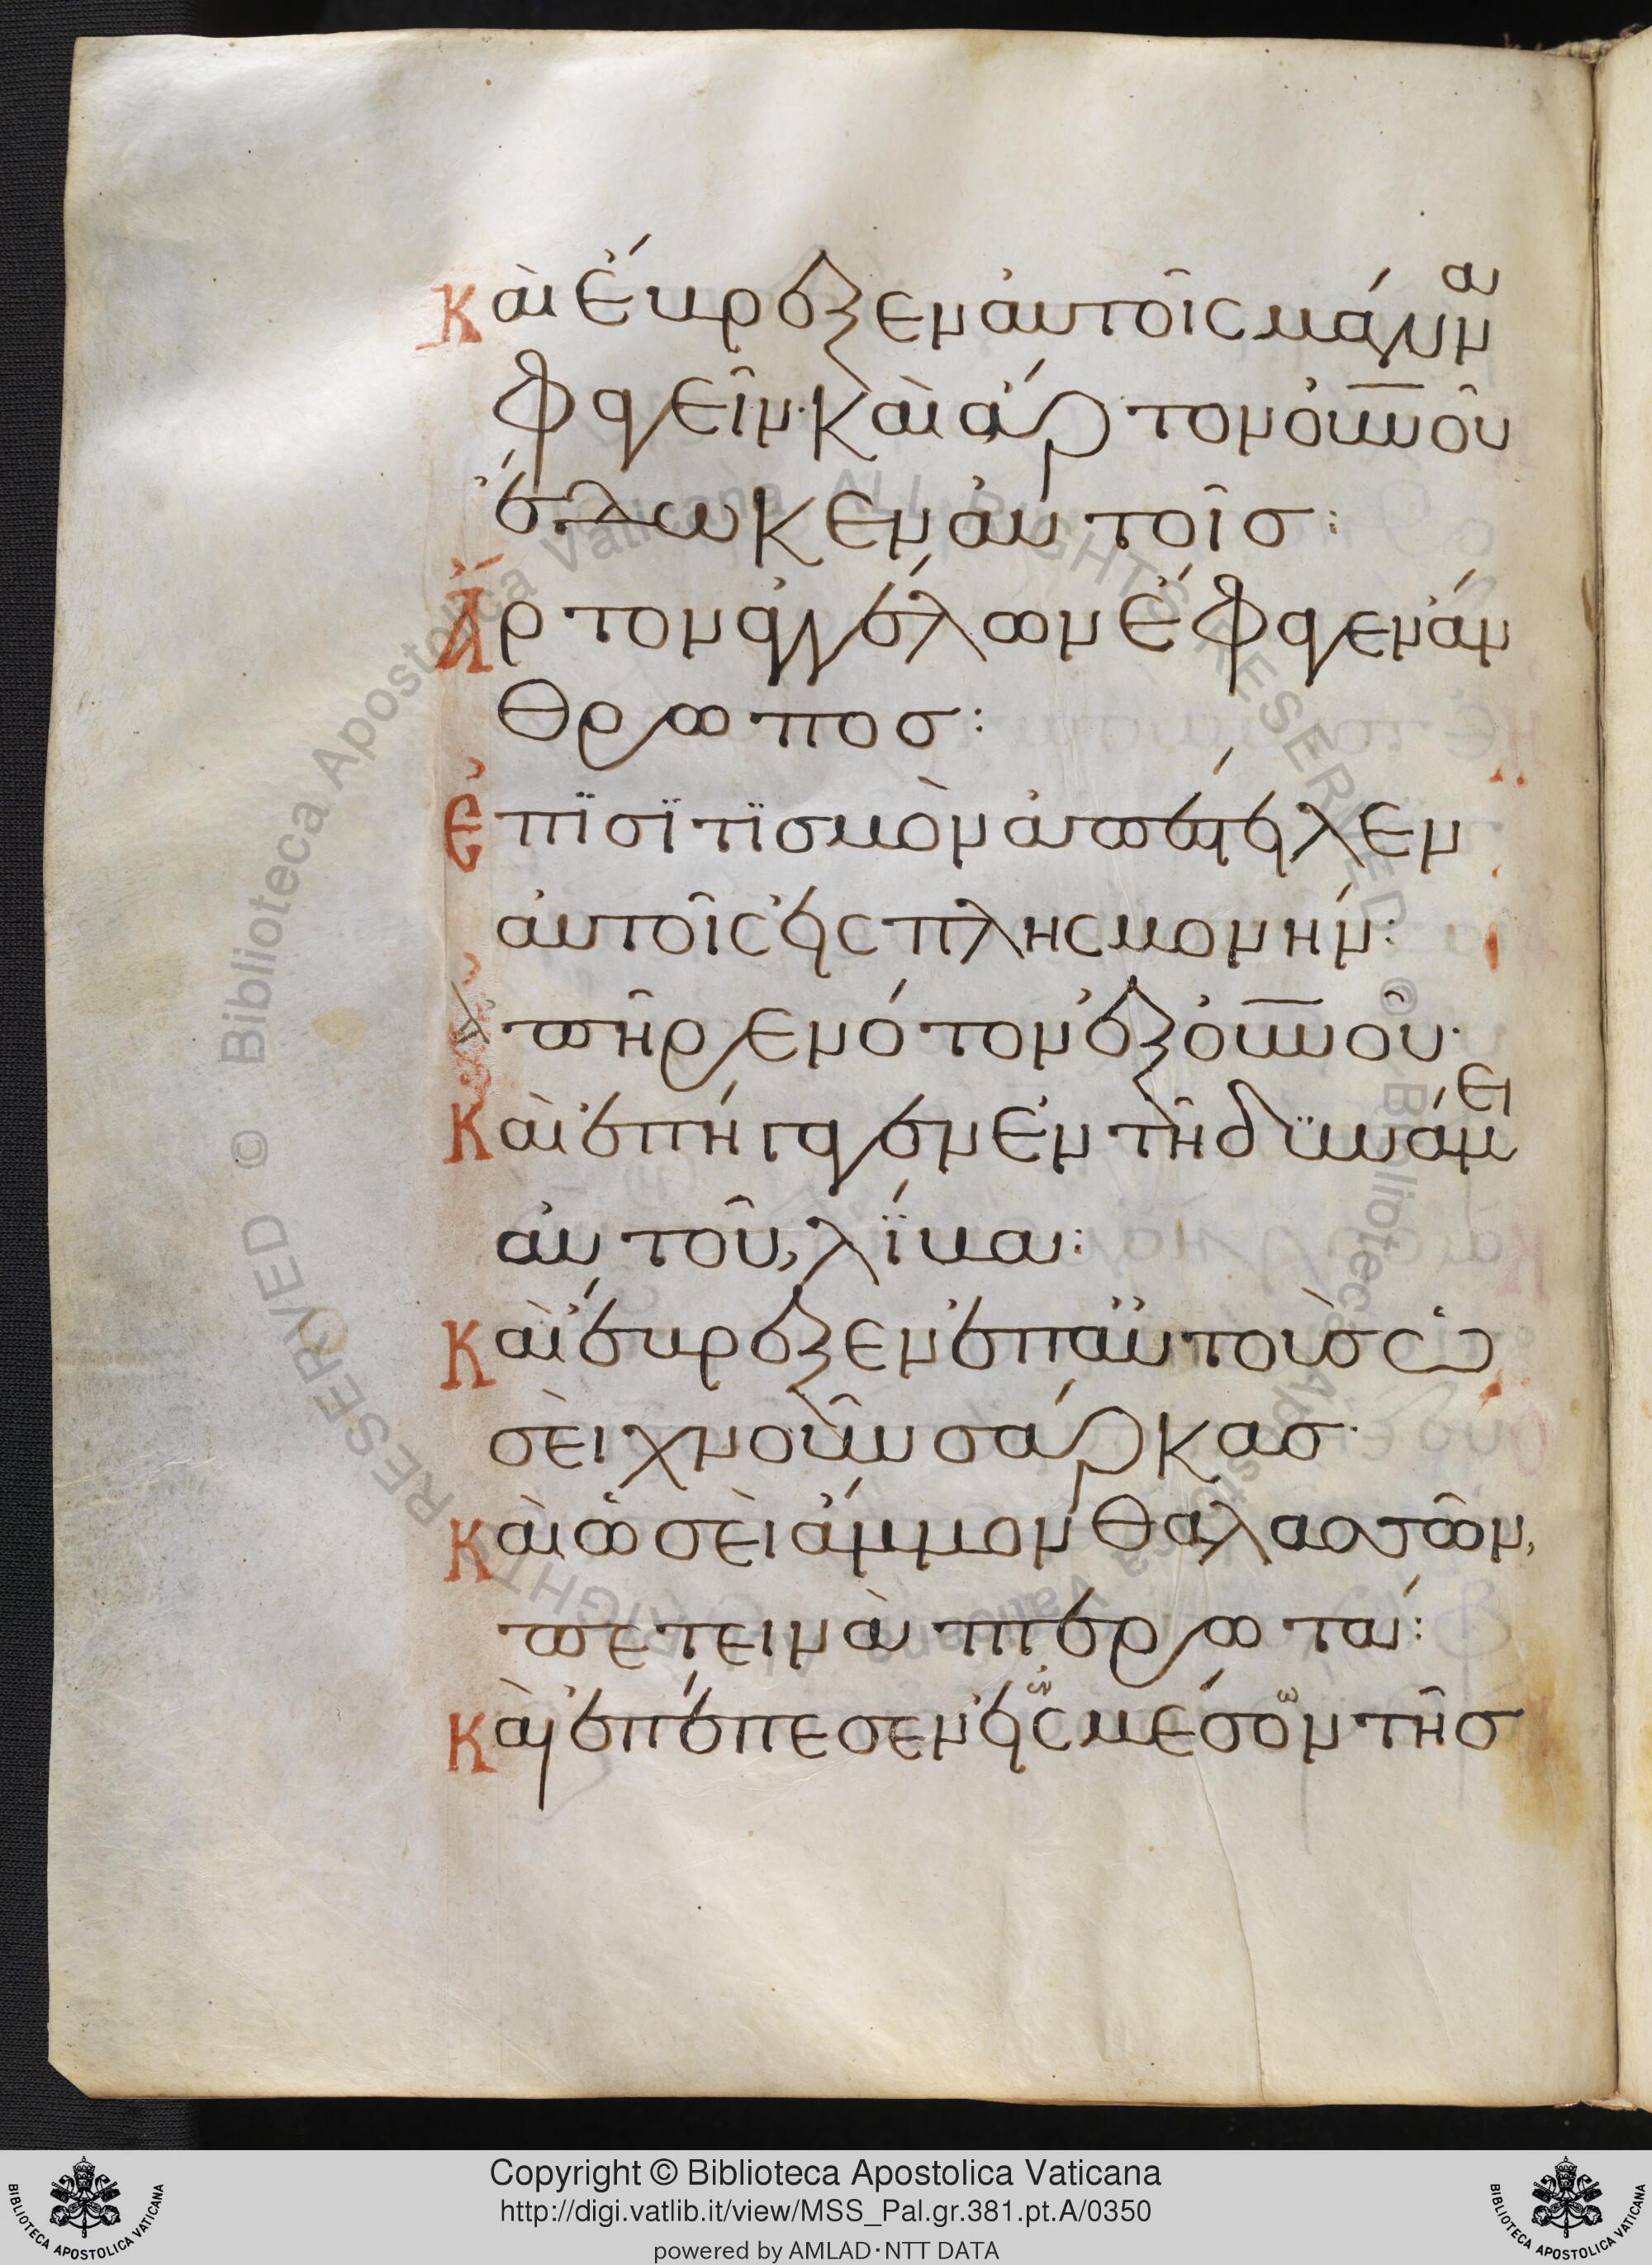 Καὶ ἔβρεξεν αὐτοῖς μάννα
φαγεῖν· καὶ ἄρτον οὐνοῦ
ἔδωκεν αὐτοῖσ:
Ἄρτον ἀγγέλων ἔφαγεν ἄν
θρωποσ:
Ἐπϊσϊτϊσμὸν ἀπέστειλεν
αὐτοῖς εἰς πλησμονήν:
Ἀπῆρε νότον ἐξ οὐνοῦ·
Καὶ ἐπήγαγεν ἐν τῆ δϋνάμει
αὐτοῦ, λίβα:
Καὶ ἔβρεξεν ἐπ αὐτοὺσ ὡ
σεὶ χνοῦν σάρκασ·
Καὶ ὡσεὶ ἄμμον θαλασσῶν,
πετεινὰ πτερωτά:
Καὶ ἐπέπεσεν εἰς μέσον τῆσ
Copyright © Biblioteca Apostolica Vaticana
http://digi.vatlib.it/view/MSS_Pal.gr.381.pt.A/0350
powered by AMLAD·NTT DATA
BIBLIOTECA APOSTOLICA VATICANA
BIBLIOTECA APOSTOLICA VATICANA